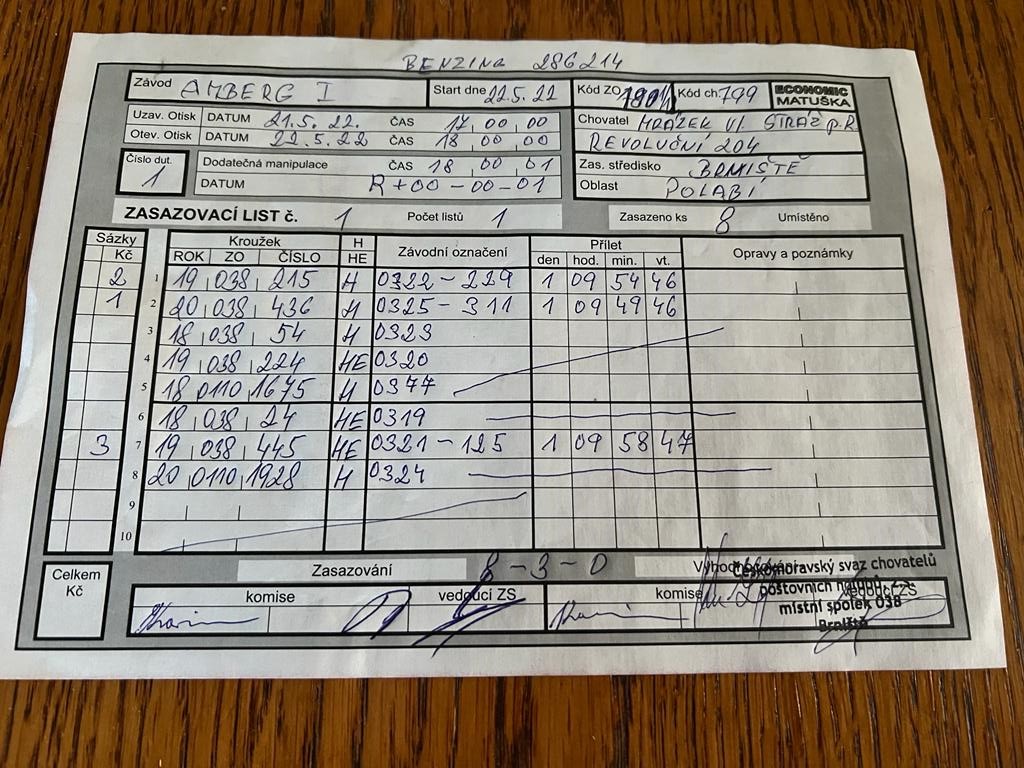 BENZINA 286214
Závod AMBERG I Start dne 22.5.22 Kód ZO Kód ch 799 ECONOMIC MATUŠKA
Uzav. Otisk DATUM 21.5.22. ČAS 17,00,00
Otev. Otisk DATUM 22.5.22 ČAS 18,00,00
Chovatel HRÁZEK Vl. STRÁŽ p.R
REVOLUČNÍ 204
Číslo dut. 1
Dodatečná manipulace ČAS 18 00 01
DATUM R+00-00-01
Zas. středisko BRNIŠTĚ
Oblast POLABÍ
ZASAZOVACÍ LIST č. 1 Počet listů 1 Zasazeno ks 8 Umístěno
Sázky Kroužek H Závodní označení Přílet Opravy a poznámky
Kč ROK ZO ČÍSLO HE den hod. min. vt.
2 1 19 038 215 H 0322-229 1 09 54 46
1 2 20 038 436 H 0325-311 1 09 49 46
3 18 038 54 H 0323
4 19 038 224 HE 0320
5 18 0110 1675 H 0377
6 18 038 24 HE 0319
3 7 19 038 445 HE 0321-125 1 09 58 47
8 20 0110 1928 H 0324
9
10
Celkem Kč
Zasazování 8-3-0
komise vedoucí ZS komise vedoucí ZS
Českomoravský svaz chovatelů
poštovních holubů, z.s.
místní spolek 038
Brniště